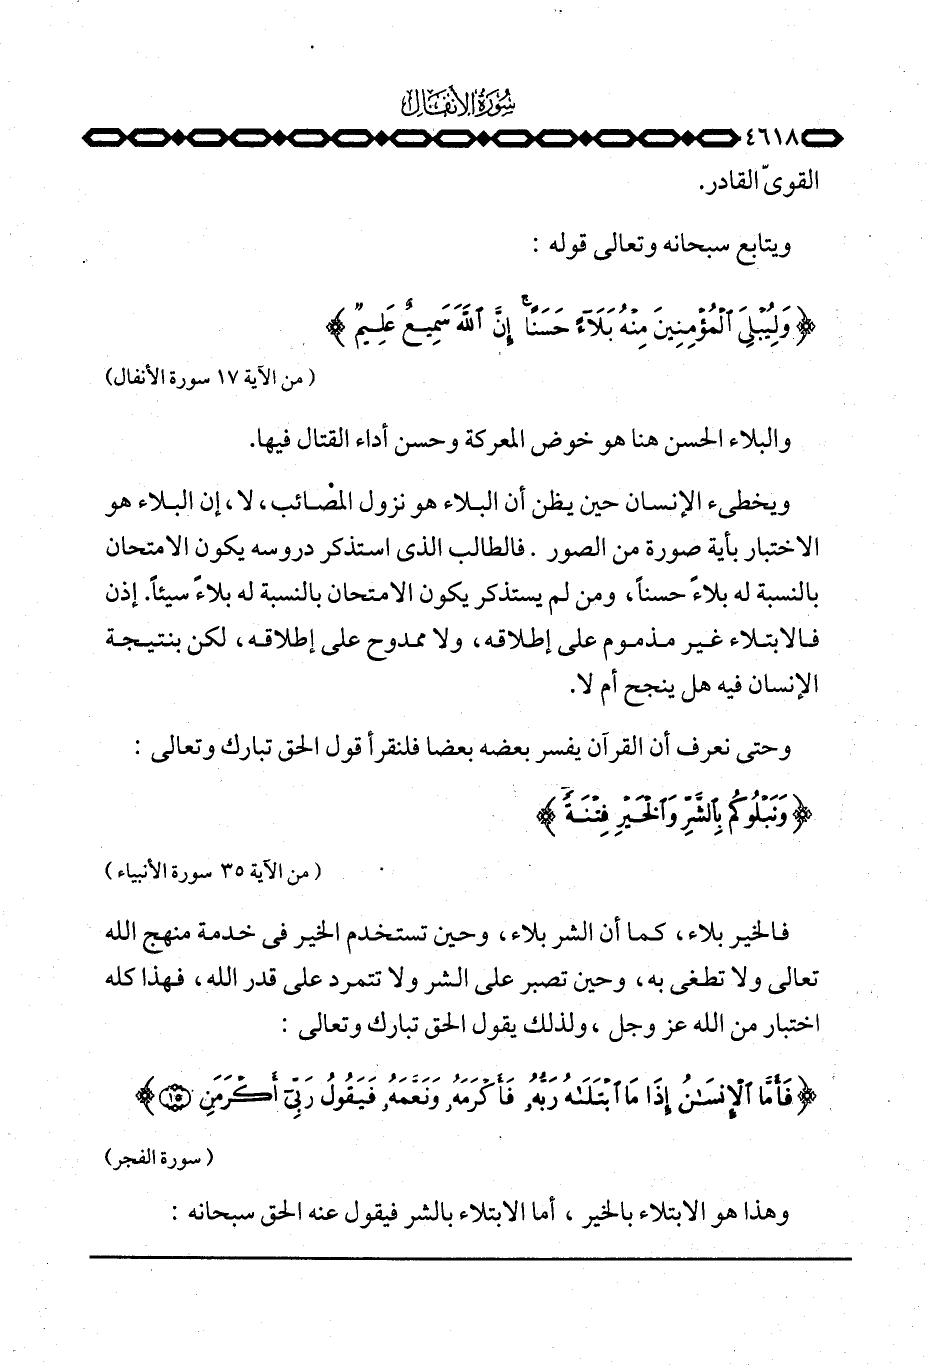 سورة الأنفال
٤٦١٨
القوىّ القادر.
ويتابع سبحانه وتعالى قوله :
﴿ وَلِيُبْلِيَ ٱلْمُؤْمِنِينَ مِنْهُ بَلَآءً حَسَنًا ۚ إِنَّ ٱللَّهَ سَمِيعٌ عَلِيمٌ ﴾
( من الآية ١٧ سورة الأنفال)
والبلاء الحسن هنا هو خوض المعركة وحسن أداء القتال فيها.
ويخطىء الإنسان حين يظن أن البلاء هو نزول المصْائب، لا، إن البلاء هو
الاختبار بأية صورة من الصور . فالطالب الذى استذكر دروسه يكون الامتحان
بالنسبة له بلاءً حسناً، ومن لم يستذكر يكون الامتحان بالنسبة له بلاءً سيئاً. إذن
فالابتلاء غير مذموم على إطلاقه، ولا ممدوح على إطلاقه، لكن بنتيجة
الإنسان فيه هل ينجح أم لا.
وحتى نعرف أن القرآن يفسر بعضه بعضا فلنقرأ قول الحق تبارك وتعالى :
﴿ وَنَبْلُوكُم بِٱلشَّرِّ وَٱلْخَيْرِ فِتْنَةً ۖ ﴾
( من الآية ٣٥ سورة الأنبياء )
فالخير بلاء، كما أن الشر بلاء، وحين تستخدم الخير فى خدمة منهج الله
تعالى ولا تطغى به، وحين تصبر على الشر ولا تتمرد على قدر الله، فهذا كله
اختبار من الله عز وجل ،ولذلك يقول الحق تبارك وتعالى :
﴿ فَأَمَّا ٱلْإِنسَـٰنُ إِذَا مَا ٱبْتَلَىٰهُ رَبُّهُۥ فَأَكْرَمَهُۥ وَنَعَّمَهُۥ فَيَقُولُ رَبِّىٓ أَكْرَمَنِ ١٥ ﴾
( سورة الفجر)
وهذا هو الابتلاء بالخير ، أما الابتلاء بالشر فيقول عنه الحق سبحانه :